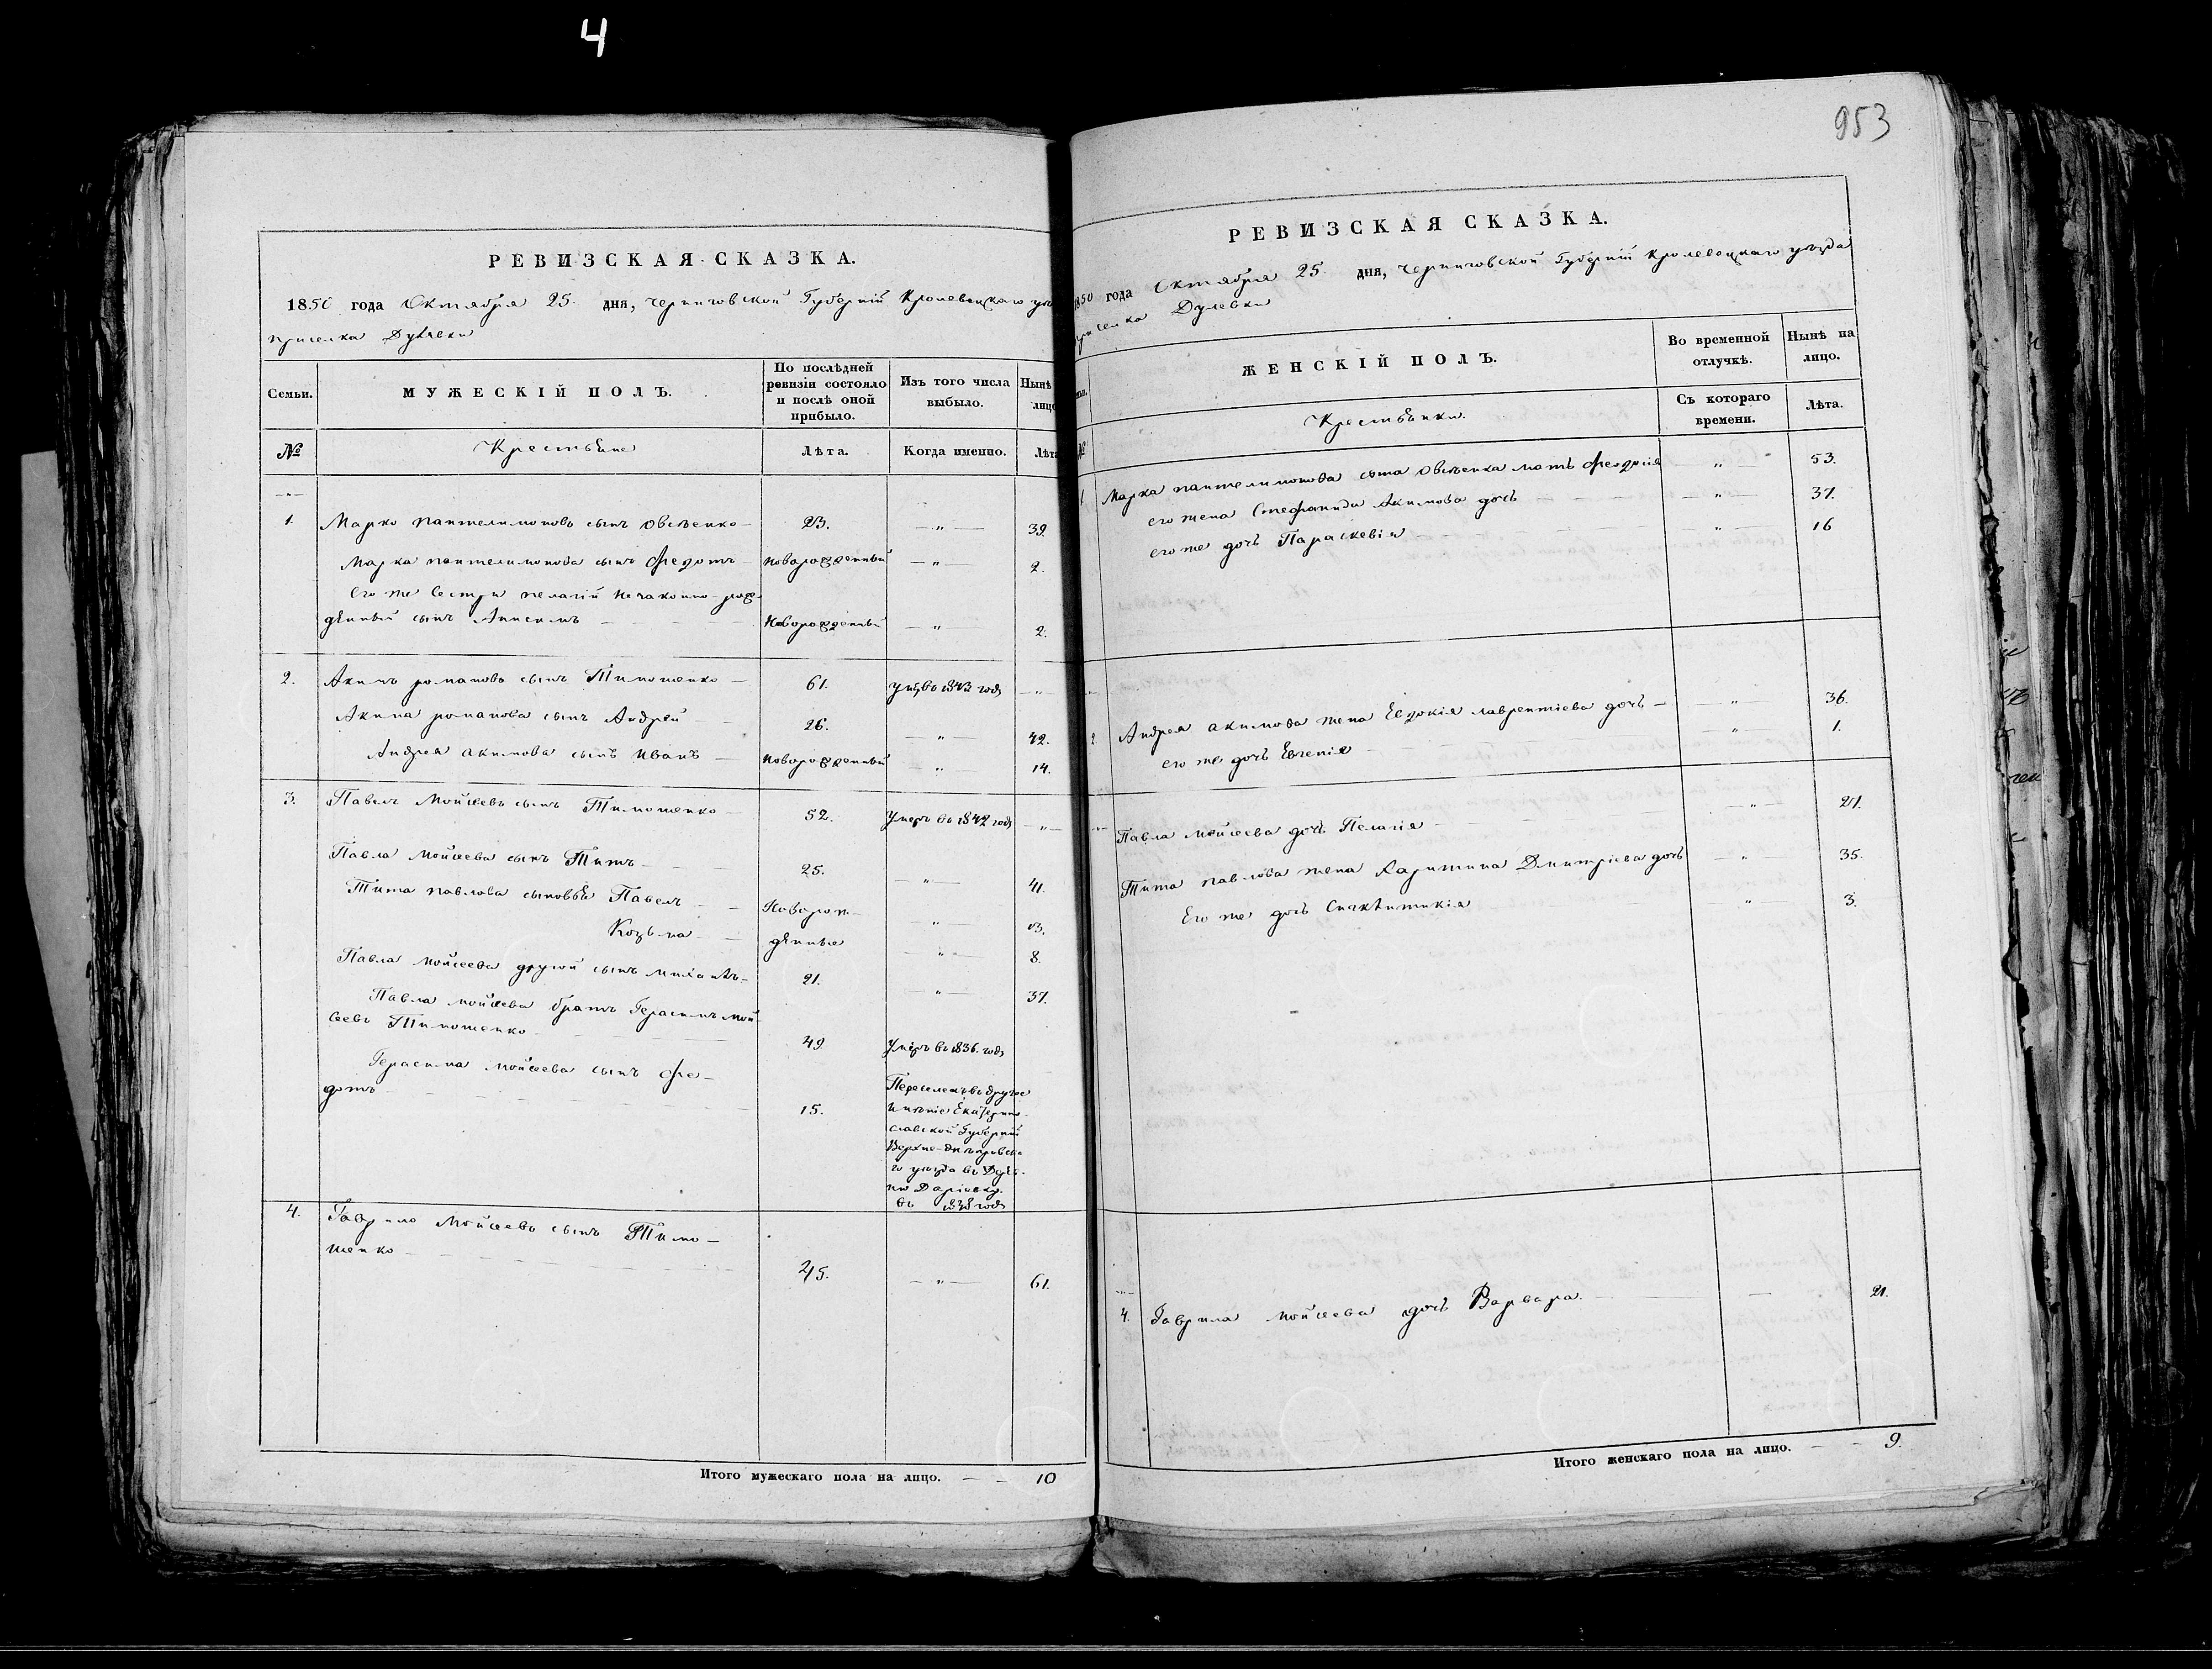 4
953
РЕВИЗСКАЯ СКАЗКА.
1850 года Октября 25. дня, Черниговской Губерніи Кролевецкаго
присіолка Дулевки
Семьи. МУЖЕСКІЙ ПОЛЪ. По послѣдней ревизіи состояло и послѣ оной прибыло. Изъ того числа выбыло. Нынѣ лицо
№ Крестьяне Лѣта. Когда именно. Лѣта
1. Марко пантелимоновъ сынъ Овсѣенко — 23. — „ — 39.
Марка пантелимонова сынъ Федотъ новорожденный — „ — 2.
Его же Сестры пелагіи незаконно-рож-
денный сынъ Анисимъ Новорожденный — „ — 2.
2. Акимъ романовъ сынъ Тимошенко — 61. въ 1843 годѣ — „ —
Акима романова сынъ Андрей 26. — „ — 42.
Андрея акимова сынъ Иванъ — новорожденный — „ — 14.
3. Павелъ Мойсеевъ сынъ Тимошенко — 52. Умеръ въ 1842 годѣ — „ —
Павла Мойсеева сынъ Титъ — 25. — „ — 41.
Тита павлова сыновья Павелъ — Новорож- — „ — 13.
Козьма — денные — „ — 8.
Павла Мойсеева другой сынъ Михаилъ — 21. — „ — 37.
Павла мойсеева братъ Герасимъ Мой-
сеевъ Тимошенко — 49. Умеръ въ 1836. годѣ
Герасима Мойсеева сынъ Фе-
дотъ 15. Переселенъ въ другое
имѣніе Екатерино-
славской Губерніи
Верхне-днѣпровска-
го уѣзда въ Дерев-
ню Даріевку.
въ годѣ
4. Гаврило Мойсеевъ сынъ Тимо-
шенко 45. — „ — 61.
Итого мужескаго пола на лицо. — — 10
РЕВИЗСКАЯ СКАЗКА.
1850 года Октября 25. дня, Черниговской Губерніи Кролевецкаго уѣзда
Дулевки
ЖЕНСКІЙ ПОЛЪ. Во временной отлучкѣ. Нынѣ на лицо.
№ Крестьянки. Съ котораго времени. Лѣта.
1. Марка пантелимонова сына Овсѣенка мать Феодосія — „ — 53.
его жена Стефанида Акимова дочь — „ — 37.
его же дочь Параскевія — „ — 16
2. Андрея акимова жена Евдокія лаврентіева дочь — — „ — 36.
его же дочь Евгенія — — „ — 1.
Павла мойсеева дочь Пелагія — — „ — 21.
Тита павлова жена Харитина Дмитріева дочь — „ — 35.
Его же дочь Синклитикія „ 3.
4. Гаврила мойсеева дочь Варвара. — — 21.
Итого женскаго пола на лицо. — — 9.